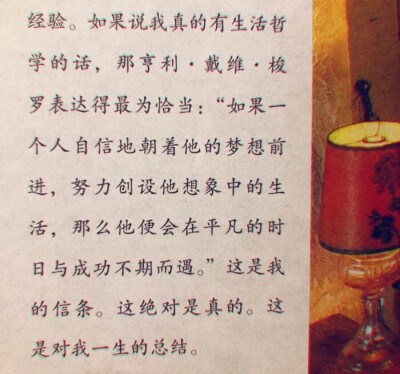 经验。如果说我真的有生活哲
学的话，那亨利·戴维·梭
罗表达得最为恰当：“如果一
个人自信地朝着他的梦想前
进，努力创设他想象中的生
活，那么他便会在平凡的时
日与成功不期而遇。”这是我
的信条。这绝对是真的。这
是对我一生的总结。